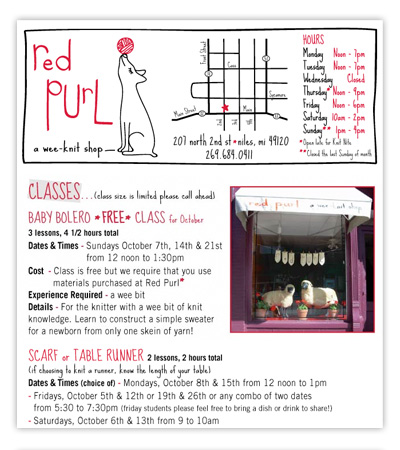 red
PURL
a wee-knit shop
Front Street
Cass
Sycamore
Main Street
Main
207 north 2nd st ★ niles, mi 49120
269.684.0411
HOURS
Monday Noon - 7pm
Tuesday Noon - 7pm
Wednesday Closed
Thursday* Noon - 9pm
Friday Noon - 6pm
Saturday 10am - 2pm
Sunday** 1pm - 4pm
*Open late for Knit Nite
**Closed the last Sunday of month
CLASSES...(class size is limited please call ahead)
BABY BOLERO *FREE* CLASS for October
3 lessons, 4 1/2 hours total
Dates & Times - Sundays October 7th, 14th & 21st
from 12 noon to 1:30pm
Cost - Class is free but we require that you use
materials purchased at Red Purl*
Experience Required - a wee bit
Details - For the knitter with a wee bit of knit
knowledge. Learn to construct a simple sweater
for a newborn from only one skein of yarn!
red purl a wee-knit shop
SCARF or TABLE RUNNER 2 lessons, 2 hours total
(if choosing to knit a runner, know the length of your table)
Dates & Times (choice of) - Mondays, October 8th & 15th from 12 noon to 1pm
- Fridays, October 5th & 12th or 19th & 26th or any combo of two dates
from 5:30 to 7:30pm (friday students please feel free to bring a dish or drink to share!)
- Saturdays, October 6th & 13th from 9 to 10am